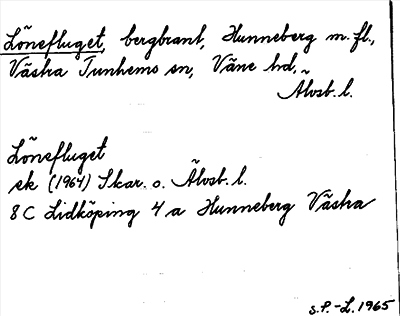 Lönefluget, bergbrant, Hunneberg m.fl.,
Västra Tunhems sn, Väne hd,
Älvsb. l.
Lönefluget
ek (1964) Skar. o. Älvsb. l.
8C Lidköping 4a Hunneberg Västra
S.P.-L. 1965